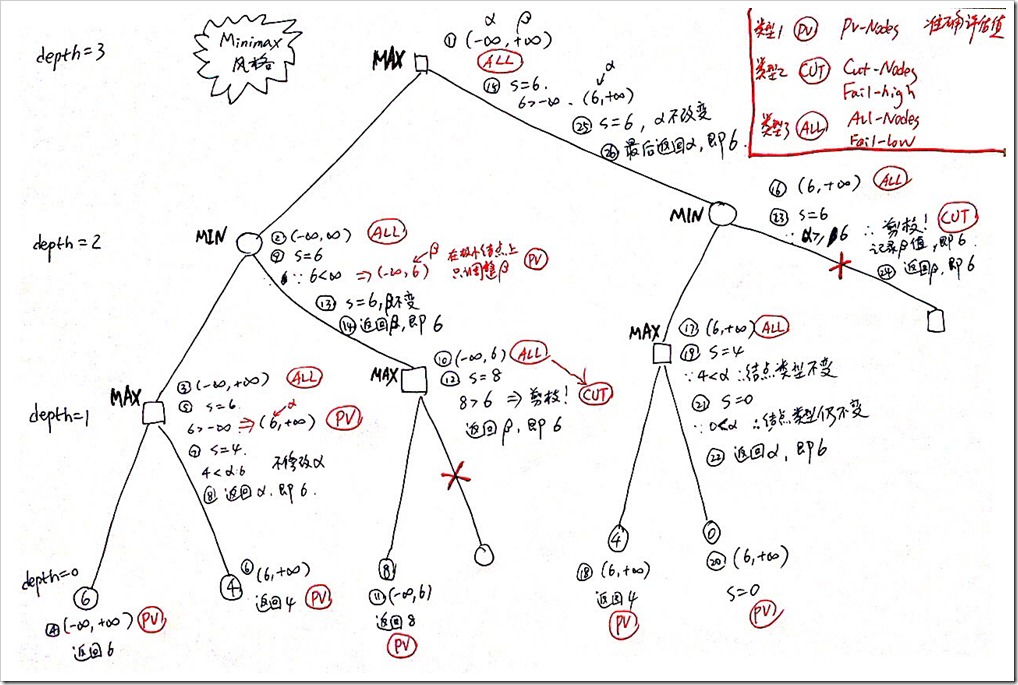 depth=3
Minimax
风格
MAX
α β
① (-∞, +∞)
ALL
⑮ s=6.
α
6>-∞ . (6,+∞)
㉕ s=6 , α不改变
㉖ 最后返回α,即6.
类型1 PV PV-Nodes 准确评估值
类型2 CUT Cut-Nodes
Fail-high
类型3 ALL All-Nodes
Fail-low
depth=2
MIN
② (-∞,∞) ALL
⑨ s=6
∵ 6<∞ ⇒(-∞,6) β 在极小结点上
只调整β PV
⑬ s=6,β不变
⑭ 返回β,即6
MIN
⑯ (6,+∞) ALL
㉓ s=6
∵ α≥β6 ∴ 剪枝! CUT
记录β值,即6.
㉔ 返回β,即6
depth=1
MAX
③ (-∞,+∞) ALL
⑤ s=6.
α
6>-∞ ⇒ (6,+∞) PV
⑦ s=4.
4<α.6 不修改α
⑧ 返回α.即6.
MAX
⑩ (-∞,6) ALL
⑫ s=8
8>6 ⇒ 剪枝! CUT
返回β,即6
MAX
⑰ (6,+∞) ALL
⑲ s=4
∵4<α ∴结点类型不变
㉑ s=0
∵0<α ∴结点类型仍不变
㉒ 返回α,即6
depth=0
6
④ (-∞,+∞) PV
返回6
4
⑥ (6,+∞)
返回4 PV
8
⑪ (-∞,6)
返回8
PV
4
⑱ (6,+∞)
返回4
PV
0
⑳ (6,+∞)
s=0
PV